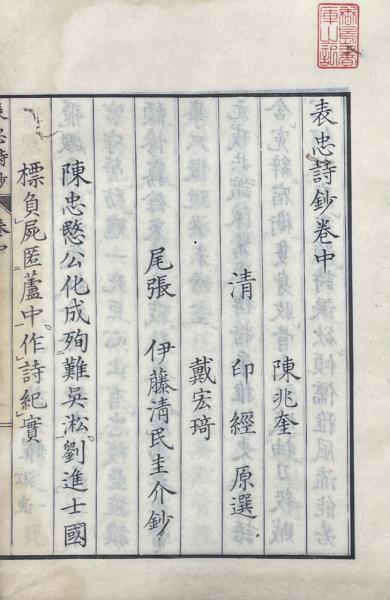 表忠詩鈔卷中
陳兆奎
清 印經 原選
戴宏琦
尾張 伊藤淸民圭介鈔
陳忠愍公化成殉難吳淞劉進士國
標負屍匿蘆中作詩紀實
表忠詩鈔 卷中